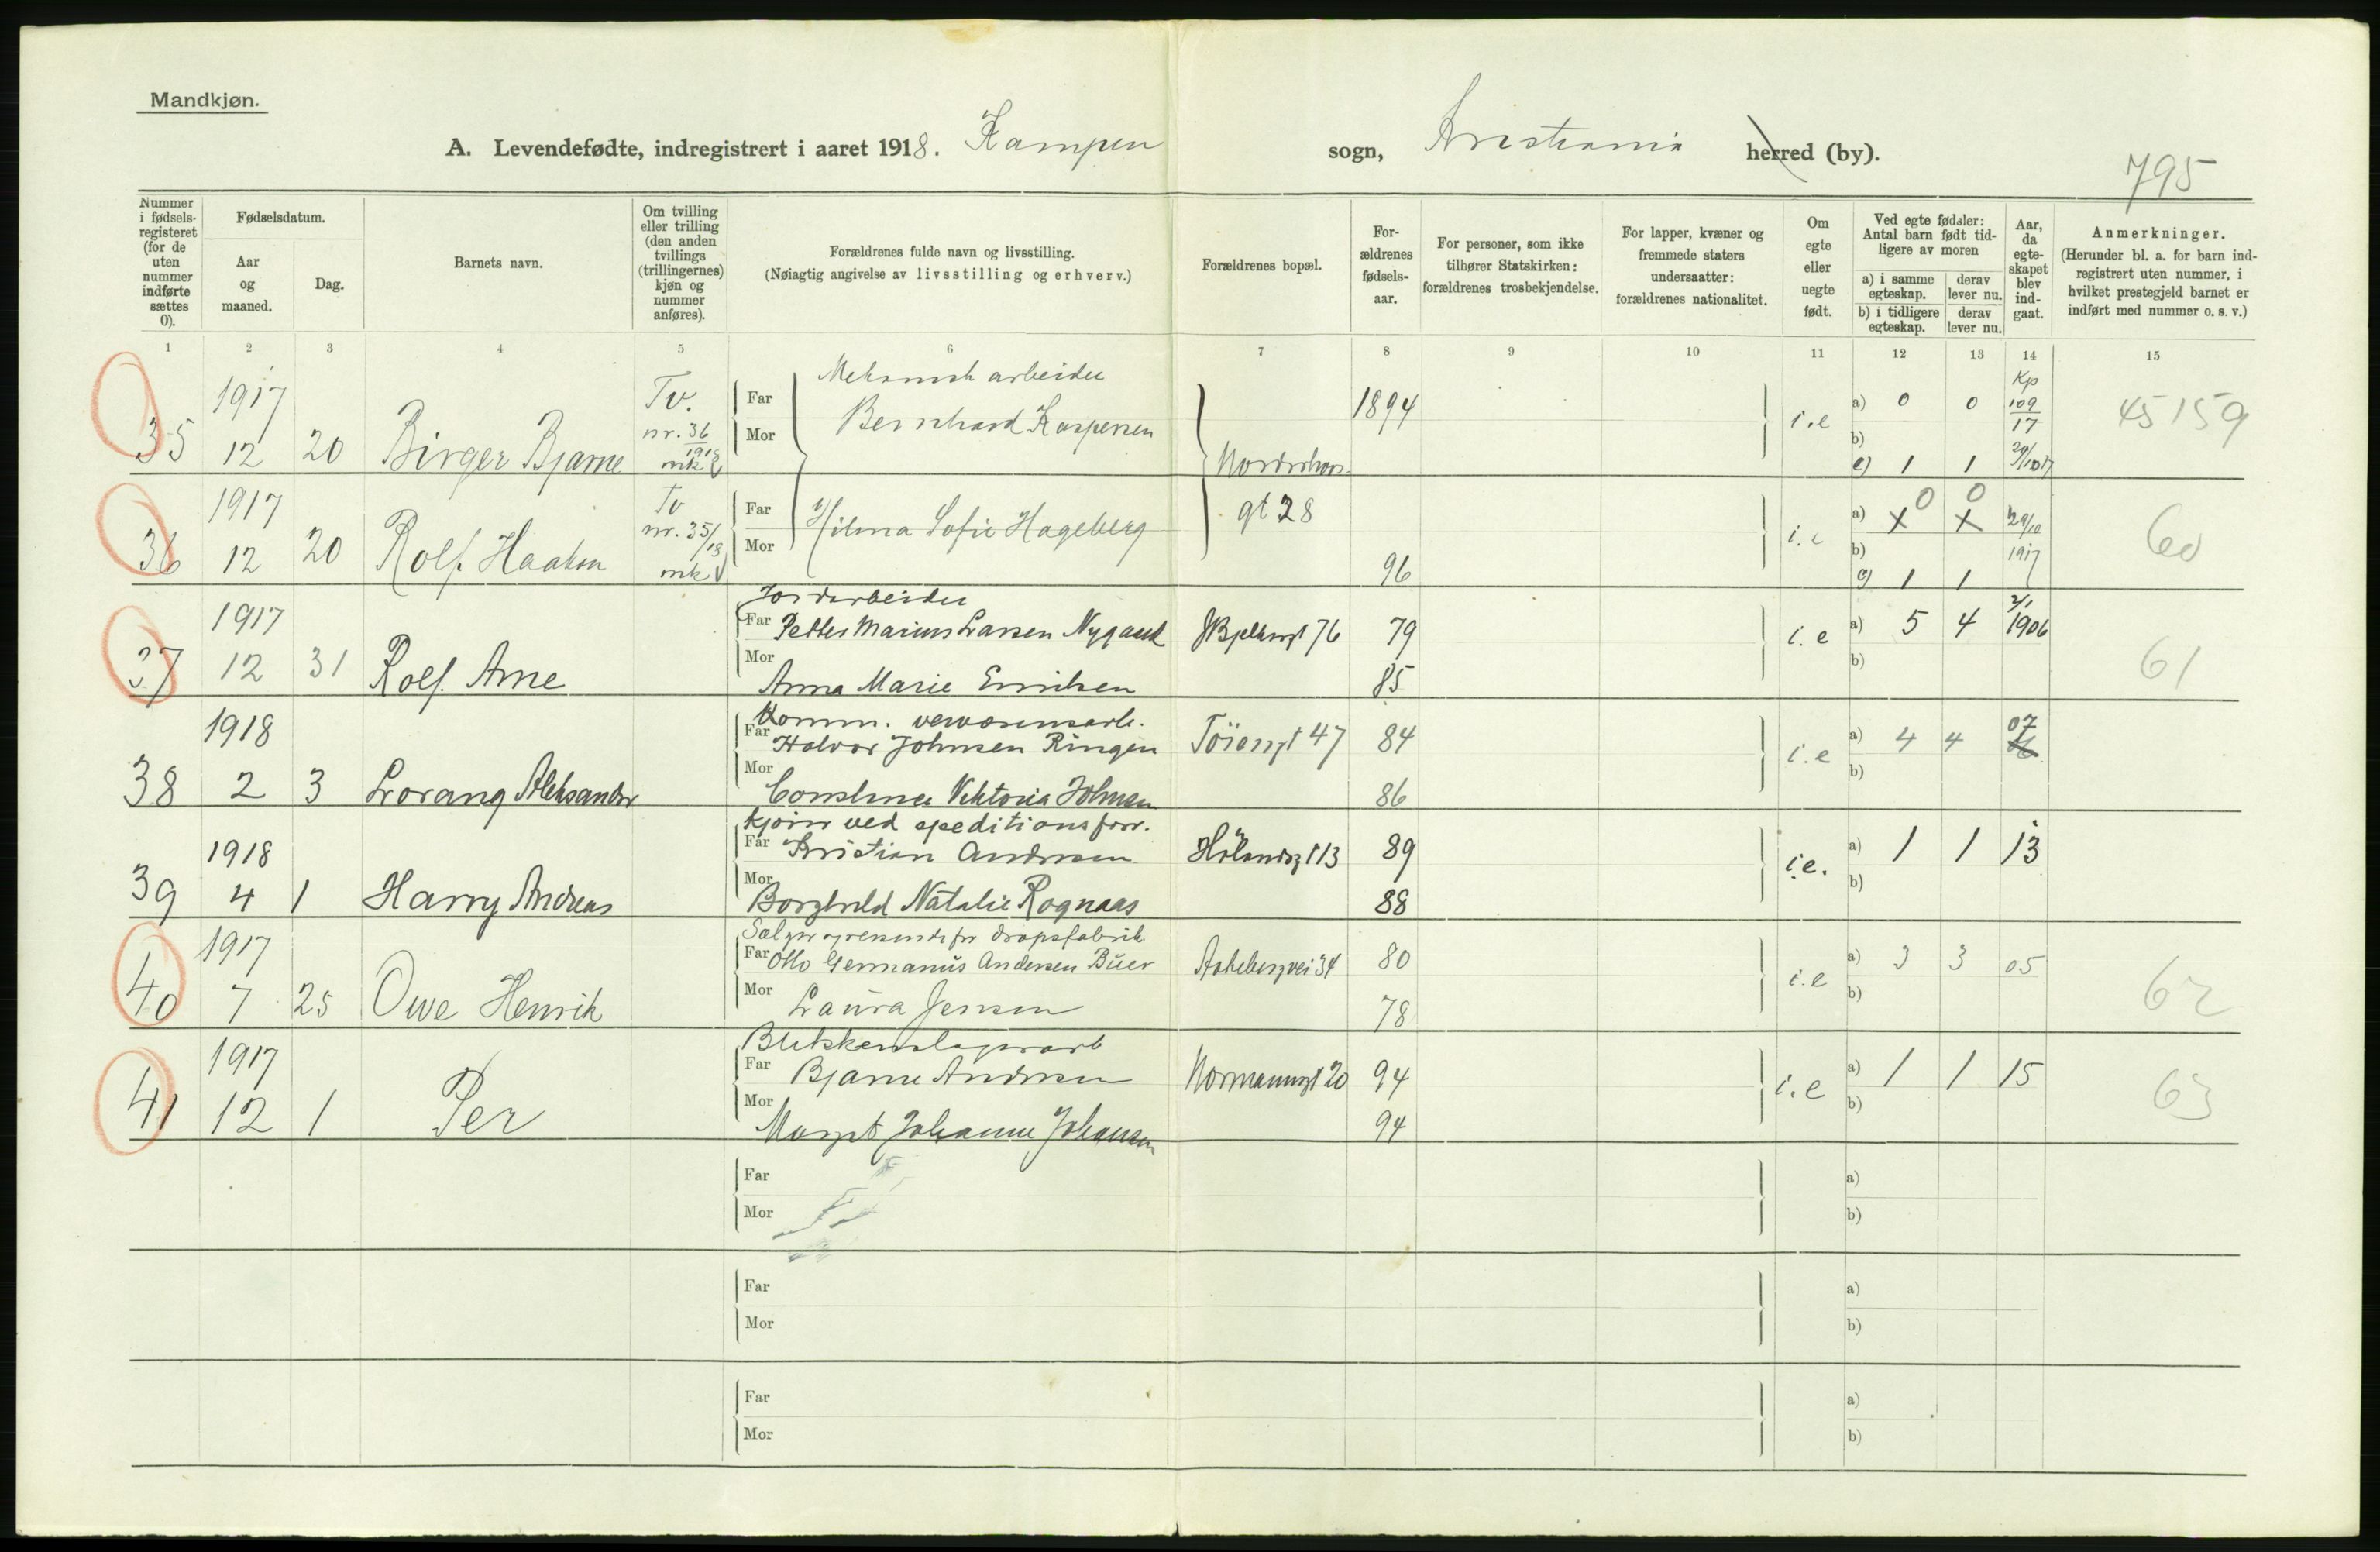 Mandkjøn.
A. Levendefødte, indregistrert i aaret 1918. Kampen sogn, Kristiania herred (by).
795
Nummer i fødsels-registeret (for de uten nummer indførte sættes 0).
Fødselsdatum.
Aar og maaned.
Dag.
Barnets navn.
Om tvilling eller trilling (den anden tvillings (trillingernes) kjøn og nummer anføres).
Forældrenes fulde navn og livsstilling.
(Nøiagtig angivelse av livsstilling og erhverv.)
Forældrenes bopæl.
For-ældrenes fødsels-aar.
For personer, som ikke tilhører Statskirken: forældrenes trosbekjendelse.
For lapper, kvæner og fremmede staters undersaatter: forældrenes nationalitet.
Om egte eller uegte født.
Ved egte fødsler: Antal barn født tid-ligere av moren
a) i samme egteskap.
derav lever nu.
b) i tidligere egteskap.
derav lever nu.
Aar, da egte-skapet blev ind-gaat.
Anmerkninger.
(Herunder bl. a. for barn ind-registrert uten nummer, i hvilket prestegjeld barnet er indført med nummer o. s. v.)
1 2 3 4 5 6 7 8 9 10 11 12 13 14 15
35 1917 12 20 Birger Bjarne Tv. nr. 36 1918 mk
Far Mor Mekanisk arbeider
Bernhard Kaspersen
1894 i.e a) 0 0 b) c) 1 1 Kp 109 17 45159
36 1917 12 20 Rolf Haakon Tv nr. 35/18 mk
Far Mor Hilma Sofie Hageberg
gt 28 96 i.e a) x 0 x 0 b) c) 1 1 29/10 1917 60
37 1917 12 31 Rolf Arne
Jordarbeider
Far Petter Marius Larsen Nygaard 79 i.e a) 5 4 2/1 1906 61
Mor Anna Marie Emilsen 85 b)
38 1918 2 3 Lorang Aleksander
Komm. veivæsensarb.
Far Halvor Johnsen Ringen Töiengt 47 84 i.e a) 4 4 07
Mor Constance Viktoria Johnsen 86 b)
39 1918 4 1 Harry Andreas
Kjører ved speditionsforr.
Far Kristian Andersen Hölandsgt 13 89 i.e. a) 1 1 13
Mor Borghild Natalie Rognaas 88 b)
40 1917 7 25 Owe Henrik
Far Otto Germanus Andersen Buer Aakebergvei 34 80 i.e a) 3 3 05 62
Mor Laura Jensen 78 b)
41 1917 12 1 Per
Blikkenslagerarb
Far Bjarne Andersen Normannsgt 20 94 i.e a) 1 1 15 63
Mor Margit Johanne Johansen 94 b)
Far a)
Mor b)
Far a)
Mor b)
Far a)
Mor b)